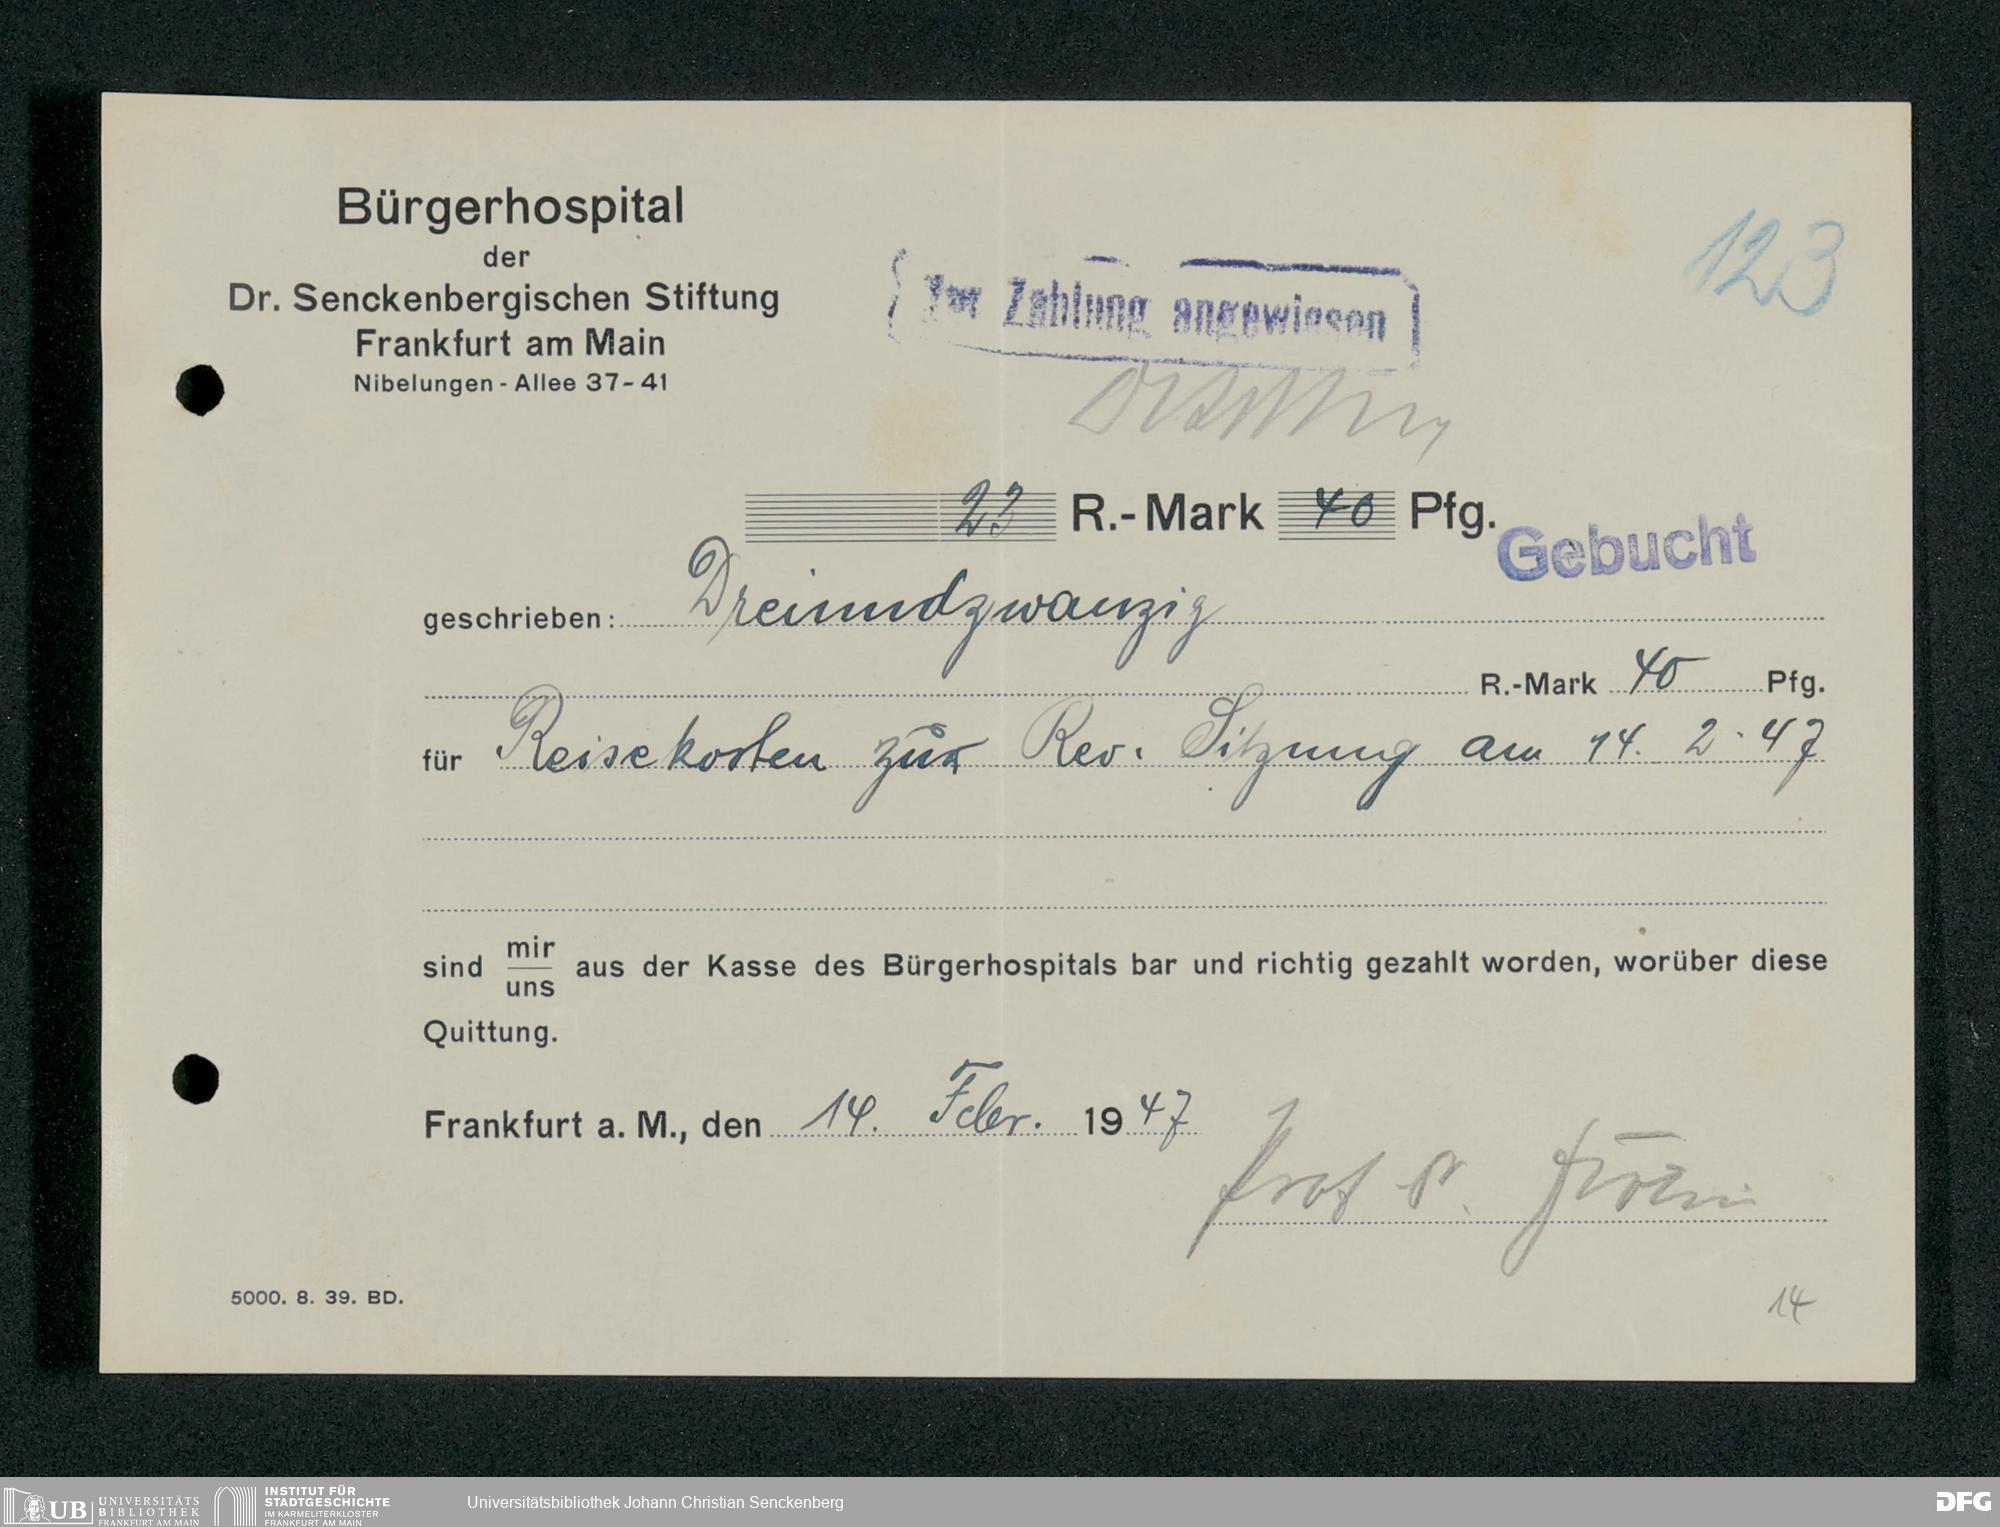 Bürgerhospital
der
Dr. Senckenbergischen Stiftung
Frankfurt am Main
Nibelungen - Allee 37-41
Zur Zahlung angewiesen
123
23 R.-Mark 40 Pfg.
Gebucht
geschrieben: Dreiundzwanzig
R.-Mark 40 Pfg.
für Reisekosten zur Rev. Sitzung am 14. 2. 47
sind mir
uns
aus der Kasse des Bürgerhospitals bar und richtig gezahlt worden, worüber diese
Quittung.
Frankfurt a. M., den 14. Febr. 1947
Prof
5000. 8. 39. BD.
14
UB UNIVERSITÄTS
BIBLIOTHEK
FRANKFURT AM MAIN
INSTITUT FÜR
STADTGESCHICHTE
IM KARMELITERKLOSTER
FRANKFURT AM MAIN
Universitätsbibliothek Johann Christian Senckenberg
DFG